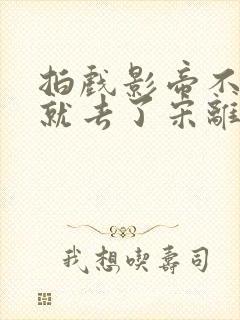 拍戏影帝不
就去了宋離
我想喫壽司